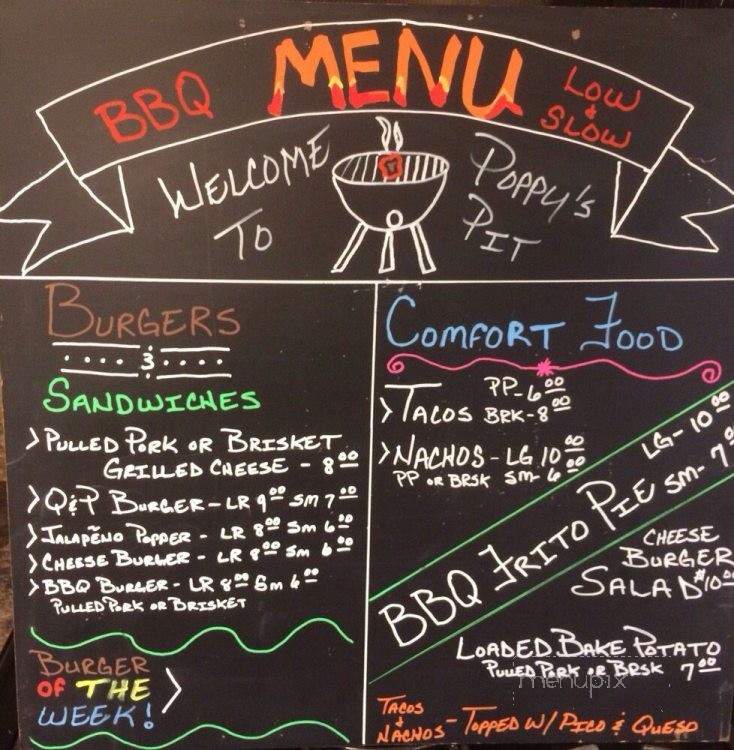 BBQ MENU LOW & SLOW
WELCOME TO POPPY'S PIT
BURGERS
&
SANDWICHES
> PULLED PORK OR BRISKET
GRILLED CHEESE - 8.00
> Q&P BURGER - LR 9.00 SM 7.00
> JALAPEÑO POPPER - LR 8.00 SM 6.00
> CHEESE BURGER - LR 8.00 SM 6.00
> BBQ BURGER - LR 8.00 SM 6.00
PULLED PORK OR BRISKET
BURGER
OF THE >
WEEK!
COMFORT FOOD
> TACOS PP - 6.00
BRK - 8.00
> NACHOS - LG 10.00
PP OR BRSK SM - 6.00
BBQ FRITO PIE LG - 10.00
SM - 7.00
CHEESE
BURGER
SALAD $10.00
LOADED BAKE POTATO
PULLED PORK OR BRSK 7.00
TACOS
&
NACHOS - TOPPED W/ PICO & QUESO
menupix